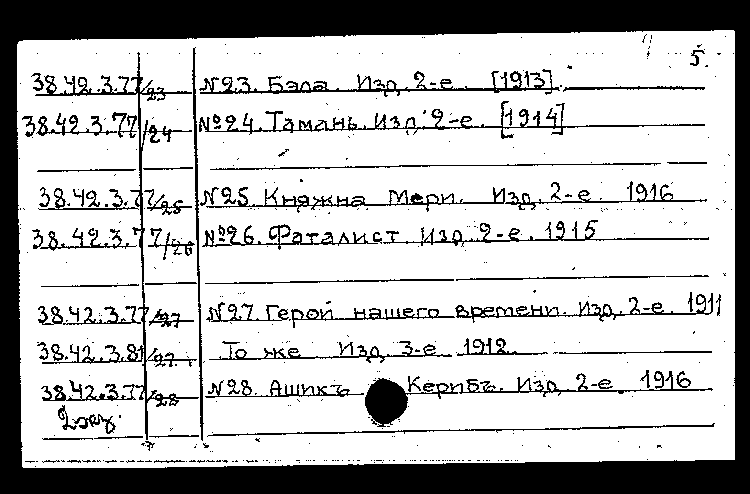 5.
38.42.3.77/23 №23. Бэла. Изд. 2-е. [1913].
38.42.3.77/24 №24. Тамань. Изд. 2-е. [1914]
38.42.3.77/25 №25. Княжна Мери. Изд. 2-е. 1916
38.42.3.77/26 №26. Фаталист. Изд. 2-е. 1915
38.42.3.77/27 №27. Герой нашего времени. Изд. 2-е. 1911
38.42.3.81/27. То же Изд. 3-е 1912.
38.42.3.77/28 №28. Ашикъ Керибъ. Изд. 2-е. 1916
2 экз.